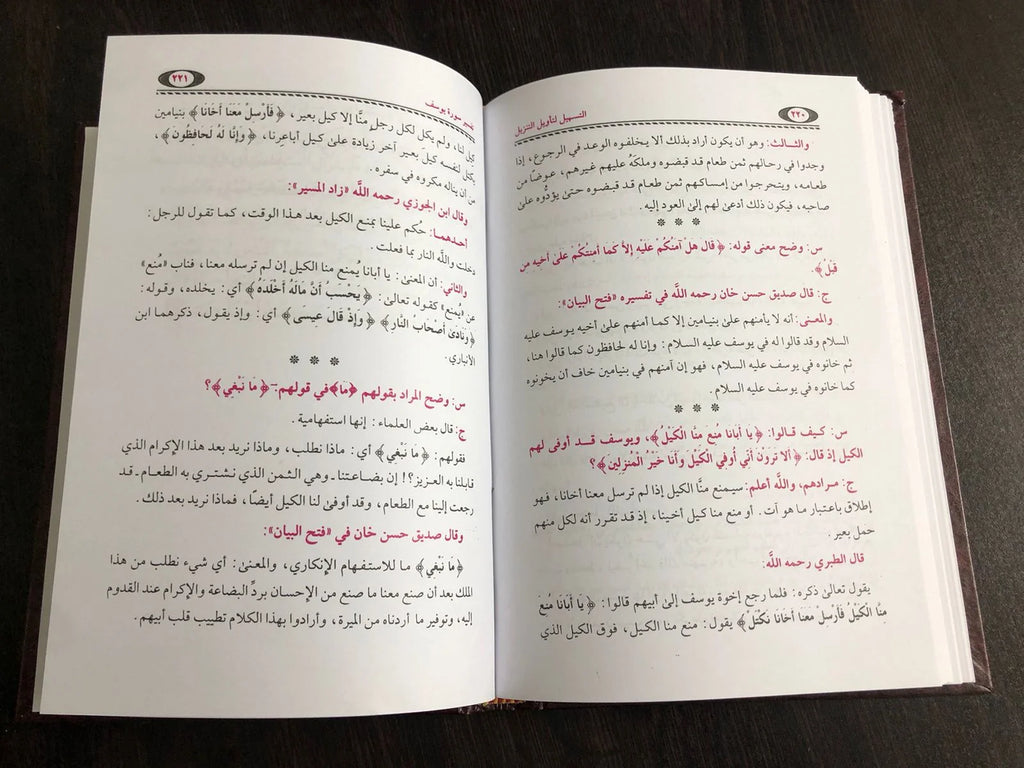 ٢٢٠
التسهيل لتأويل التنزيل
والثالث: وهو أن يكون أراد بذلك ألا يخلفوه الوعد في الرجوع، إذا
وجدوا في رحالهم ثمن طعام قد قبضوه وملكه عليهم غيرهم، عوضًا من
طعامه، ويتحرجوا من إمساكهم ثمن طعام قد قبضوه حتىٰ يؤدُّوه علىٰ
صاحبه، فيكون ذلك أدعىٰ لهم إلىٰ العود إليه.
* * *
س: وضح معنى قوله: ﴿قَالَ هَلْ آمَنُكُمْ عَلَيْهِ إِلاَّ كَمَا أَمِنتُكُمْ عَلَىٰ أَخِيهِ مِن
قَبْلُ﴾.
ج: قال صديق حسن خان رحمه اللَّه في تفسيره «فتح البيان»:
والمعنى: أنه لا يأمنهم علىٰ بنيامين إلا كما أمنهم علىٰ أخيه يوسف عليه
السلام وقد قالوا له في يوسف عليه السلام: وإنا له لحافظون كما قالوا هنا،
ثم خانوه في يوسف عليه السلام، فهو إن أمنهم في بنيامين خاف أن يخونوه
كما خانوه في يوسف عليه السلام.
* * *
س: كيف قالوا: ﴿يَا أَبَانَا مُنِعَ مِنَّا الْكَيْلُ﴾، ويوسف قد أوفى لهم
الكيل إذ قال: ﴿أَلا تَرَوْنَ أَنِّي أُوفِي الْكَيْلَ وَأَنَا خَيْرُ الْمُنزِلِينَ﴾؟
ج: مرادهم، واللَّه أعلم: سيمنع منَّا الكيل إذا لم ترسل معنا أخانا، فهو
إطلاق باعتبار ما هو آت. أو منع منا كيل أخينا، إذ قد تقرر أنه لكل منهم
حمل بعير.
قال الطبري رحمه اللَّه:
يقول تعالىٰ ذكره: فلما رجع إخوة يوسف إلىٰ أبيهم قالوا: ﴿يَا أَبَانَا مُنِعَ
مِنَّا الْكَيْلُ فَأَرْسِلْ مَعَنَا أَخَانَا نَكْتَلْ﴾ يقول: منع منا الكيل، فوق الكيل الذي
تفسير سورة يوسف
٢٢١
كيل لنا، ولم يكل لكل رجلٍ منَّا إلا كيل بعير، ﴿فَأَرْسِلْ مَعَنَا أَخَانَا﴾ بنيامين
يكتل لنفسه كيل بعير آخر زيادة علىٰ كيل أباعرنا، ﴿وَإِنَّا لَهُ لَحَافِظُونَ﴾،
من أن يناله مكروه في سفره.
وقال ابن الجوزي رحمه اللَّه «زاد المسير»:
أحدهما: حُكم علينا بمنع الكيل بعد هذا الوقت، كما تقول للرجل:
دخلت واللَّه النار بما فعلت.
والثاني: أن المعنىٰ: يا أبانا يُمنع منا الكيل إن لم ترسله معنا، فناب «مُنع»
عن «يُمنع» كقوله تعالىٰ: ﴿يَحْسَبُ أَنَّ مَالَهُ أَخْلَدَهُ﴾ أي: يخلده، وقوله:
﴿وَنَادَىٰ أَصْحَابُ النَّارِ﴾ ﴿وَإِذْ قَالَ عِيسَى﴾ أي: وإذ يقول، ذكرهما ابن
الأنباري.
* * *
س: وضح المراد بقولهم ﴿مَا﴾ في قولهم- ﴿مَا نَبْغِي﴾؟
ج: قال بعض العلماء: إنها استفهامية.
فقولهم: ﴿مَا نَبْغِي﴾ أي: ماذا نطلب، وماذا نريد بعد هذا الإكرام الذي
قابلنا به العزيز؟! إن بضاعتنا - وهي الثمن الذي نشتري به الطعام - قد
رجعت إلينا مع الطعام، وقد أوفىٰ لنا الكيل أيضًا، فماذا نريد بعد ذلك.
وقال صديق حسن خان في «فتح البيان»:
﴿مَا نَبْغِي﴾ ما للاستفهام الإنكاري، والمعنىٰ: أي شيء نطلب من هذا
الملك بعد أن صنع معنا ما صنع من الإحسان بردِّ البضاعة والإكرام عند القدوم
إليه، وتوفير ما أردناه من الميرة، وأرادوا بهذا الكلام تطييب قلب أبيهم.